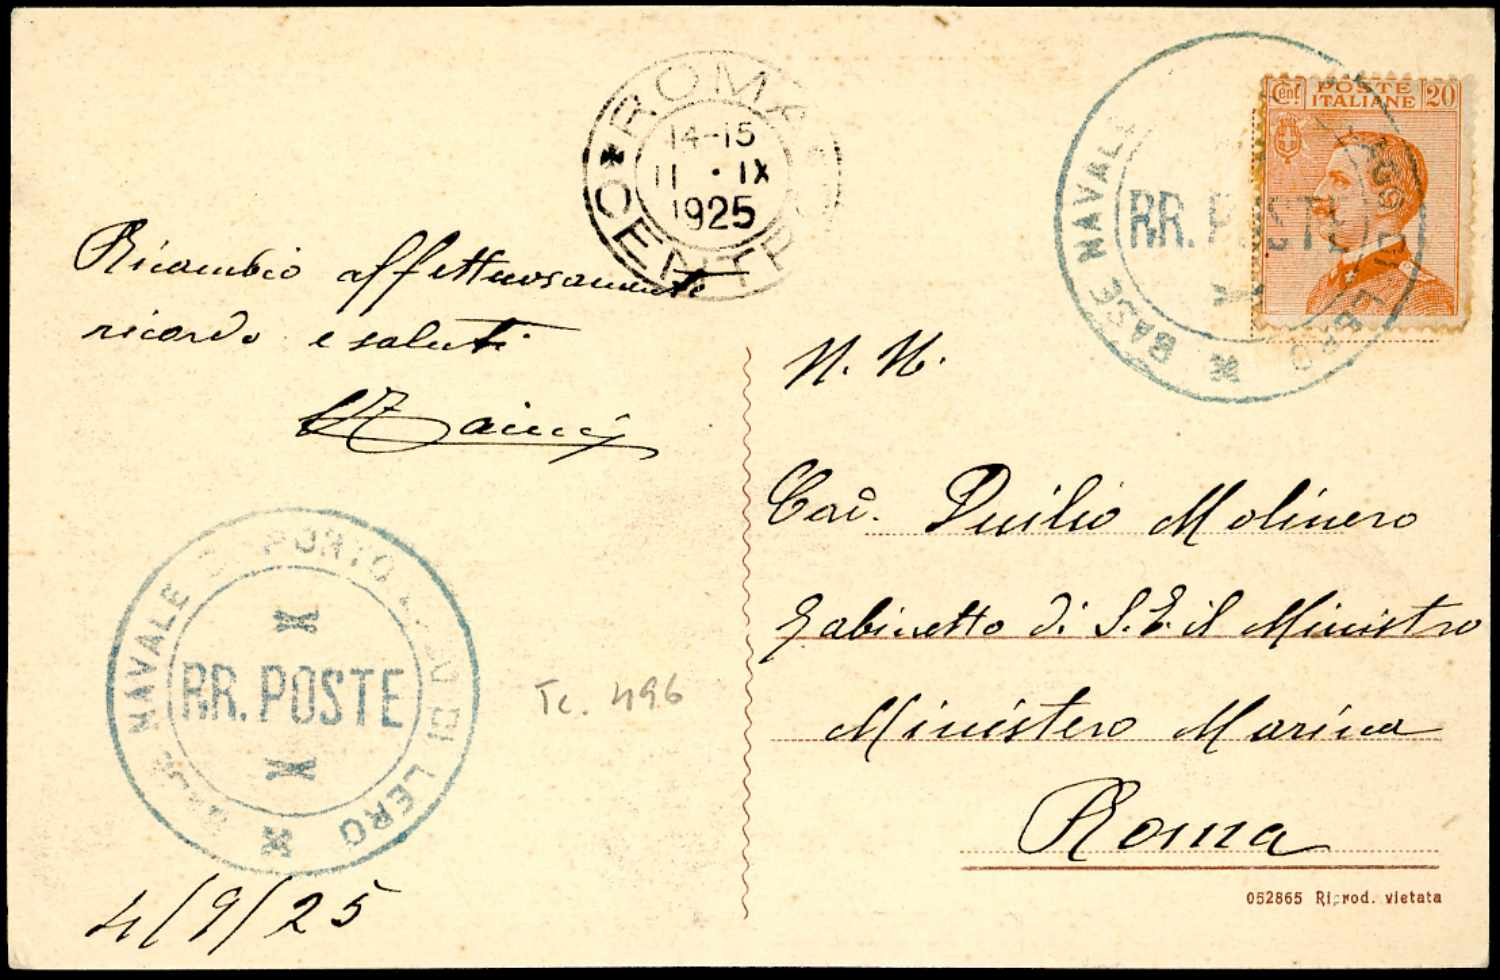 ROMA CENTRO
14-15
11 · IX
1925
Cent. POSTE ITALIANE 20
BASE NAVALE LERO
RR. POSTE
Ricambio affettuosamente
ricordo e saluti
N. H.
Cav. Duilio Molinero
Gabinetto di S.E. il Ministro
Ministero Marina
Roma
NAVALE PORTO DI LERO
RR. POSTE
Tc. 496
4/9/25
052865 Riprod. vietata